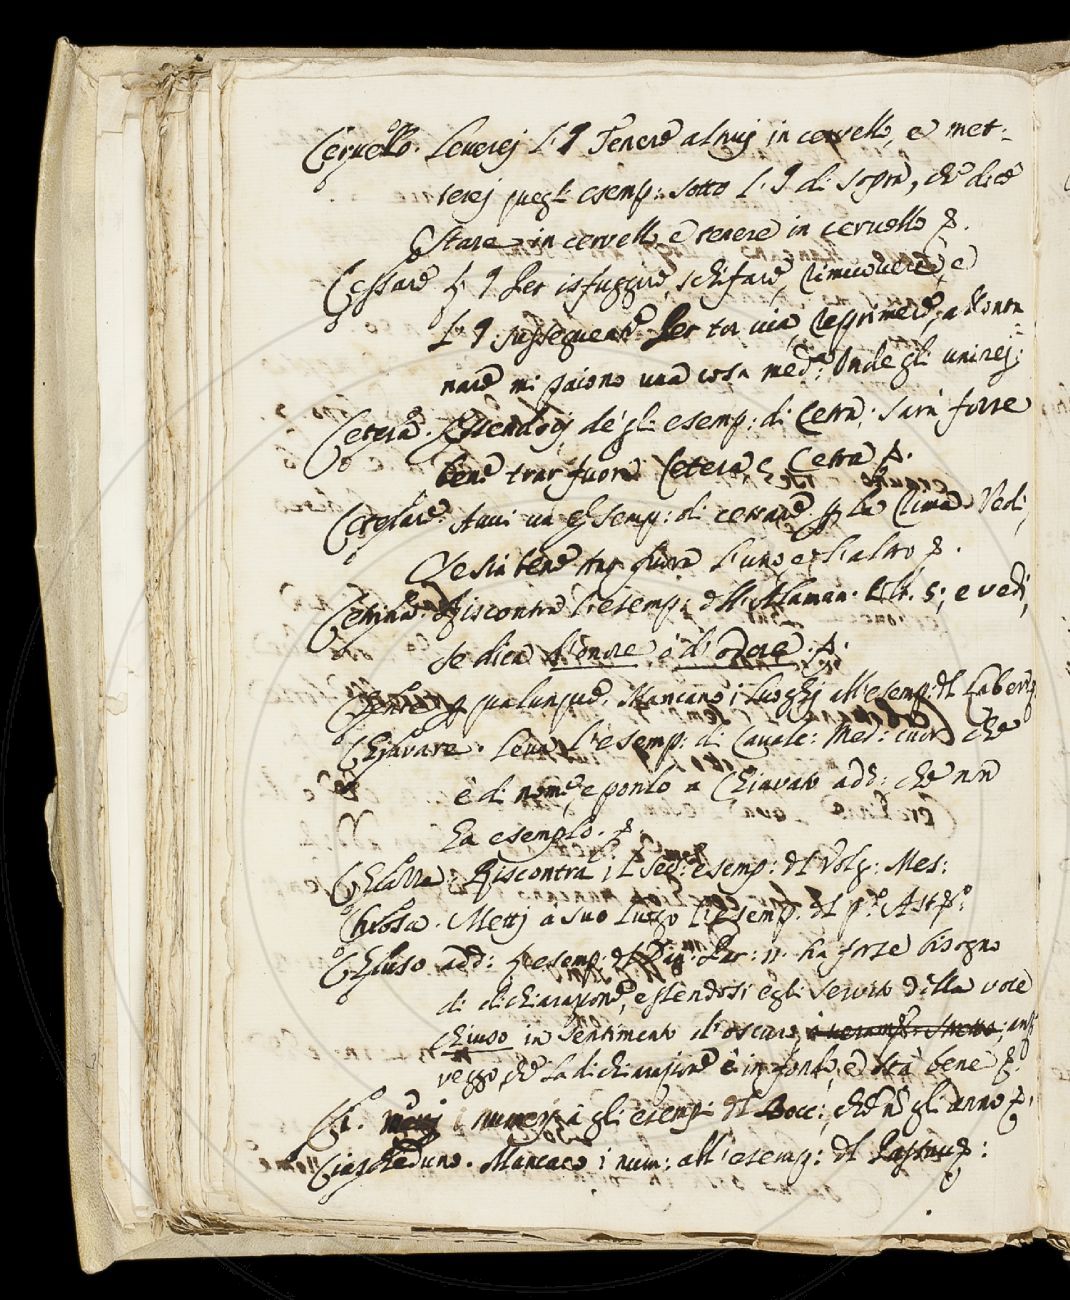 Cervello. Leverej l. § Tenere altruj in cervello, e met-
terej quegli esemp: sotto l. § di sopra, che dice
Stare in cervello, e tenere in cervello
Cessare § Per isfuggire, schifare, rimuovere, e
l. § susseguente Per tor via, reprimere, allonta
nare mi paiono una cosa med:ª Onde gli unirej:
Cetera. Essendovj de gli esemp: di Cetra; sarà forse
bene trar fuora Cetera e Cetra
Ceterare. Avvi un esemp: di cetrare la rima. Vedi,
se sia bene trar fuora l'uno, e l'altro
Cetrina. Riscontra l'esemp: dell' Alaman. Colt. 5; e vedi,
se dica l'onore o l'odore.
qualunque. Mancano i luoghj all'esemp: dl Laber:
Chiavare. Leva l'esemp: di Cavalc: Med: cuor. che
è di nome, e ponlo a Chiavato add: che nn
ha esemplo.
Riscontra il sec: esemp: dl Volg: Mes:
Chiosa. Mettj a suo luogo l'esemp. dl
Chiuso add: esemp: dl Par: 11. ha forse bisogno
di dichiarazione, essendosi egli servito della voce
chiuso in sentimento d'oscuro, anzj
veggo, che la dichiarazione è in fonte, e sta bene
Ci. i numerj a gli esemp: dl Bocc: che nn gli anno
Ciascheduno. Mancaci i num: all'esemp: dl Passav: